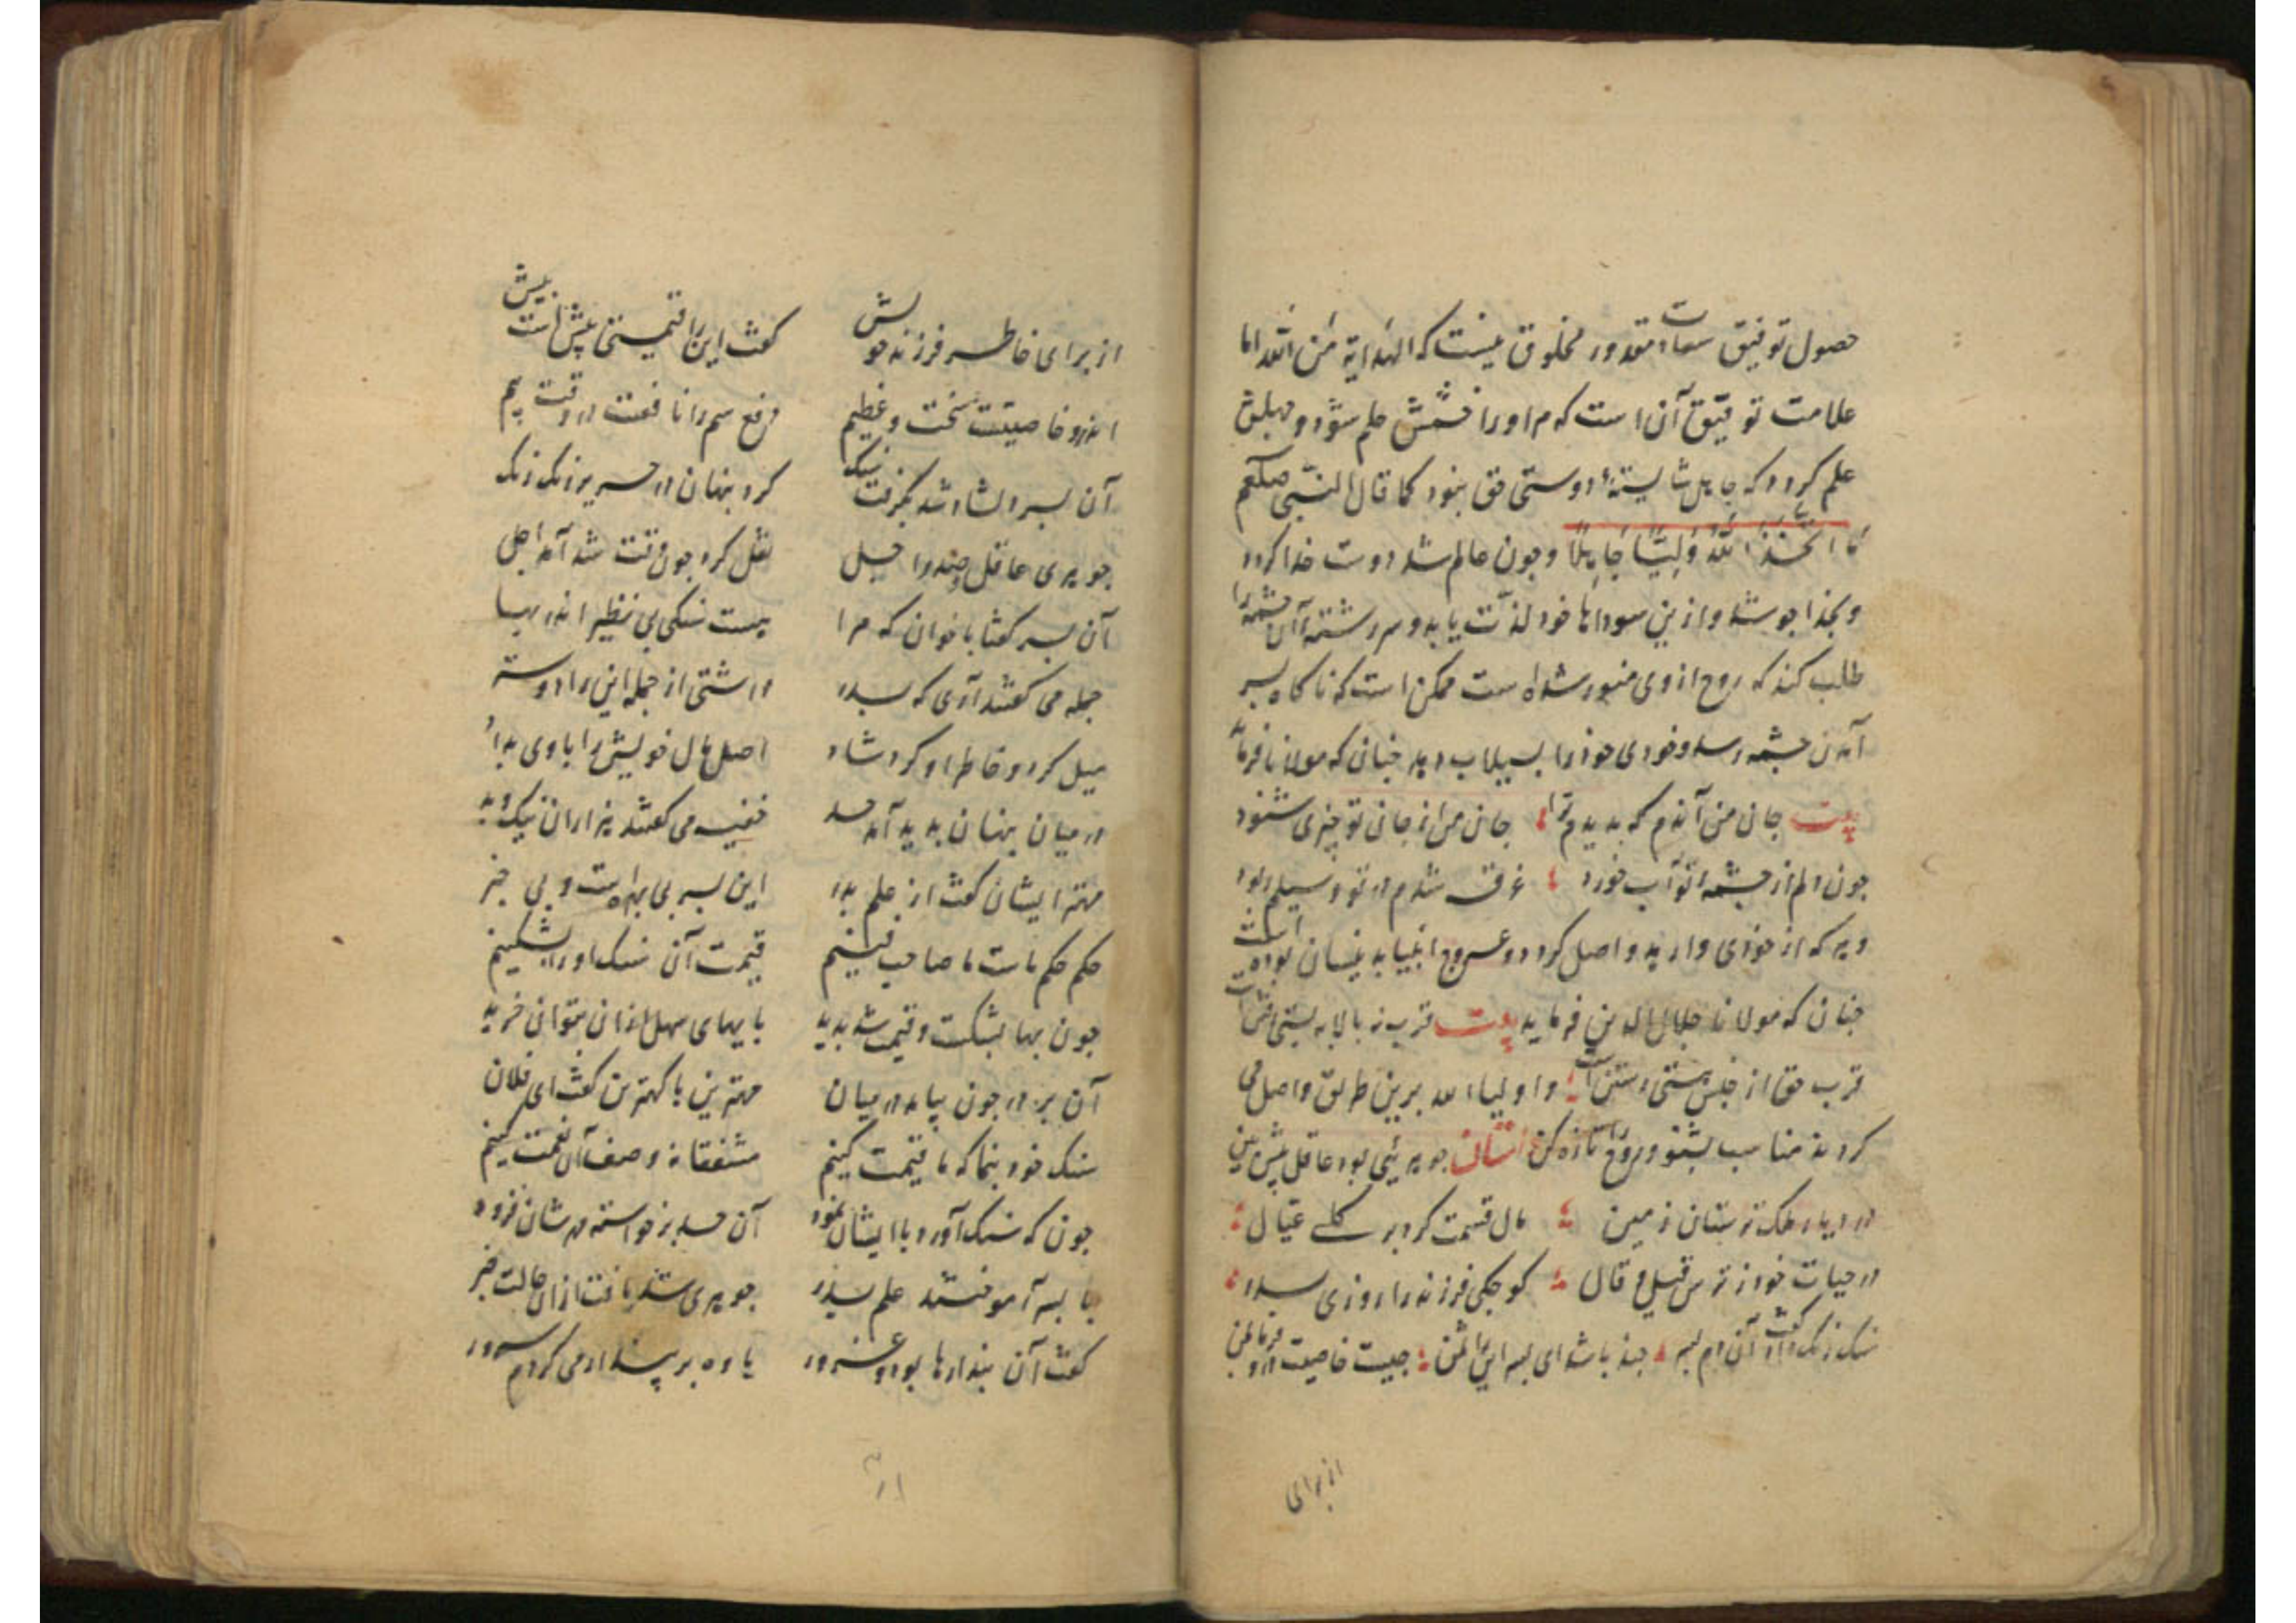 حصول توفیق سعادت مقدور مخلوق نیست که الهدایة من الله اما
علامت توفیق آن است که مر او را خشمش حلم شود و جهلش
علم کردد که جاهل شایستهٔ دوستی حق نبود کما قال النبی صلعم
ما اتخذ الله ولیا جاهلا وجون عالم شد دوست خدا کردد
و بخدا جو شد و ازین سوداها خود لذت یابد و سررشتهٔ آن چشمه را
طلب کند که روح از وی منور شده است ممکن است که ناکاه بسر
آن چشمه رسد و خودی خود را بسیلاب دهد جنانکه مولانا فرماید
بیت جان من آندم که بدیدم ترا جان من از جان تو چیزی شنود
جون دلم از چشمهٔ تو آب خورد غرق شدم در تو و سیلم ربود
و هر که از خودی وارهد واصل کردد و عروج انبیا بدینسان بوده است
جنان که مولانا جلال الدین فرماید بیت قرب نه بالا به پستی رفتن است
قرب حق از حبس هستی رستن است و اولیاء الله برین طریق واصل می
کردند مناسب بشنو و روح را تازه کن جوهرئی بود عاقل پیش بین
در دیار ملک ترستان زمین مال قسمت کرد بر کل عیال
در حیات خود ز ترس قیل و قال کوجکی فرزند را روزی پدر
سنک زنک داد گفت آن دم جند باشد ای پسر این را ثمن جیست خاصیت درو فرما بمن
از برای
از برای خاطر فرزند خویش گفت این را قیمتی بیش است بیش
اندرو خاصیتست سخت و عظیم دفع سم را نافعست در وقت بیم
آن پسر دلشاد شد بکرفت سنک کرد پنهان در حریر زنک زنک
جوهری عاقل جند را حیل نقل کرد جون وقت شد آمد اجل
آن پسر گفتا باخوان که مرا هست سنکی بی نظیر اندر بها
جمله می گفتند آری که پدر داشتی از جمله این را دوستر
میل کرد و خاطر او کرد شاد اصل مال خویش را با وی بداد
در میان پنهان پدید آمد حسد خفیه می گفتند هزاران نیک و بد
مهتر ایشان گفت از علم پدر این پسر بی بهره است و بی خبر
حکم حکم ماست ما صاحب فنیم قیمت آن سنک او را بشکنیم
جون بها بشکست و قیمت شد پدید با بهای سهل ازان بتوانی خرید
آن برادر جون بیامد در میان مهترین با کهترین گفت ای فلان
سنک خود بنما که ما قیمت کنیم مشفقانه وصف آن نعمت کنیم
جون که سنک آورد با ایشان نمود آن حسد برخواسته مهرشان فزود
با پسر آموختند علم پدر جوهری شد یافت ازان حالت خبر
گفت آن پندارها بود و غرور یاوه بر پندار می کردم سرور